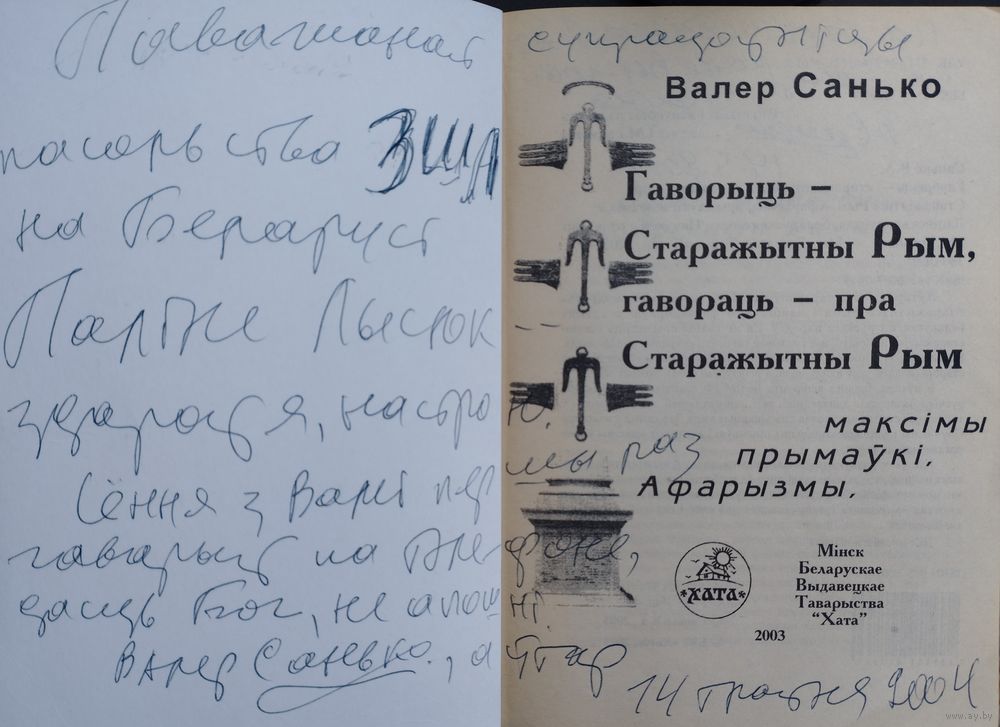 Паважанай супрацоўніцы
пасольства ЗША
на Беларусі
Паліне Лысюк --
здароўя, настрою.
Сёння з Вамі першы раз
гаварыў па тэлефоне,
дасць Бог, не апошні.
Валер Санько, аўтар
14 траўня 2004
Валер Санько
Гаворыць –
Старажытны Рым,
гавораць – пра
Старажытны Рым
максімы
прымаўкі,
Афарызмы,
*ХАТА*
Мінск
Беларускае
Выдавецкае
Таварыства
“Хата”
2003
www.ay.by